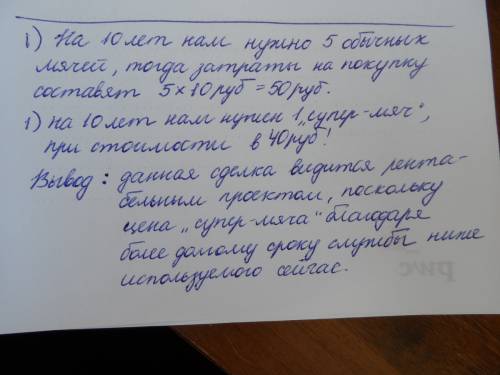 1) На 10 лет нам нужно 5 обычных
мячей, тогда затраты на покупку
составят 5×10руб =50руб.
1) на 10 лет нам нужен 1 „супер-мяч“,
при стоимости в 40руб!
Вывод: данная сделка видится рента-
бельным проектом, поскольку
цена „супер-мяча“ благодаря
более долгому сроку службы ниже
используемого сейчас.